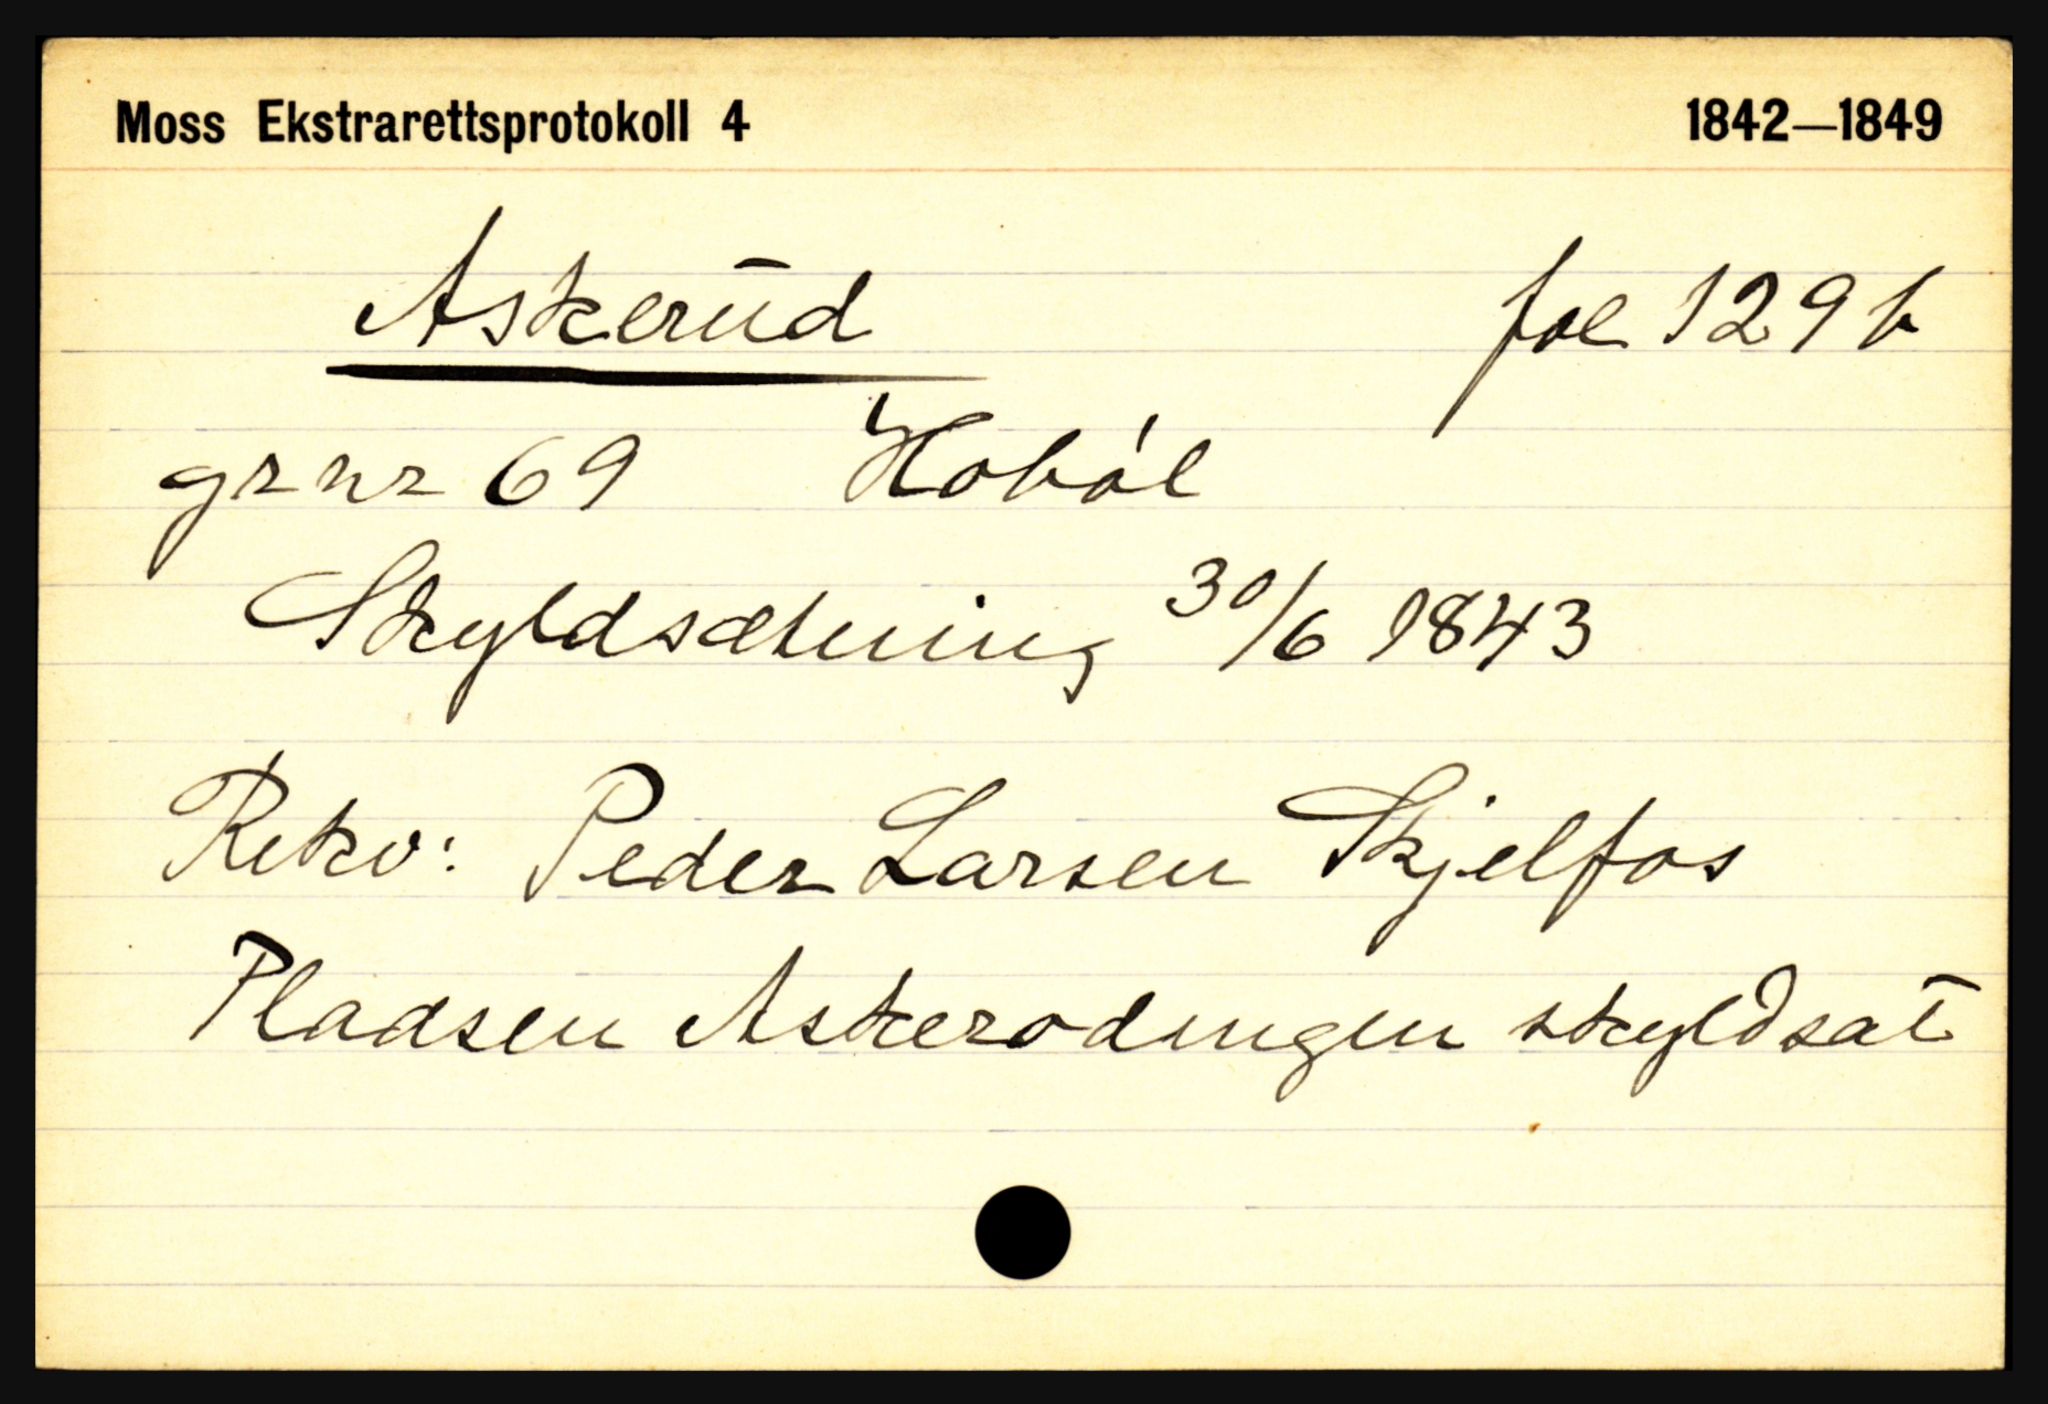 Moss Ekstrarettsprotokoll 4 1842—1849
Askerud fol 129 b
gr nr 69 Hobøl
Skyldsætning 30/6 1843
Rekv: Peder Larsen Skjelfos
Pladsen Askerodungen skyldsat